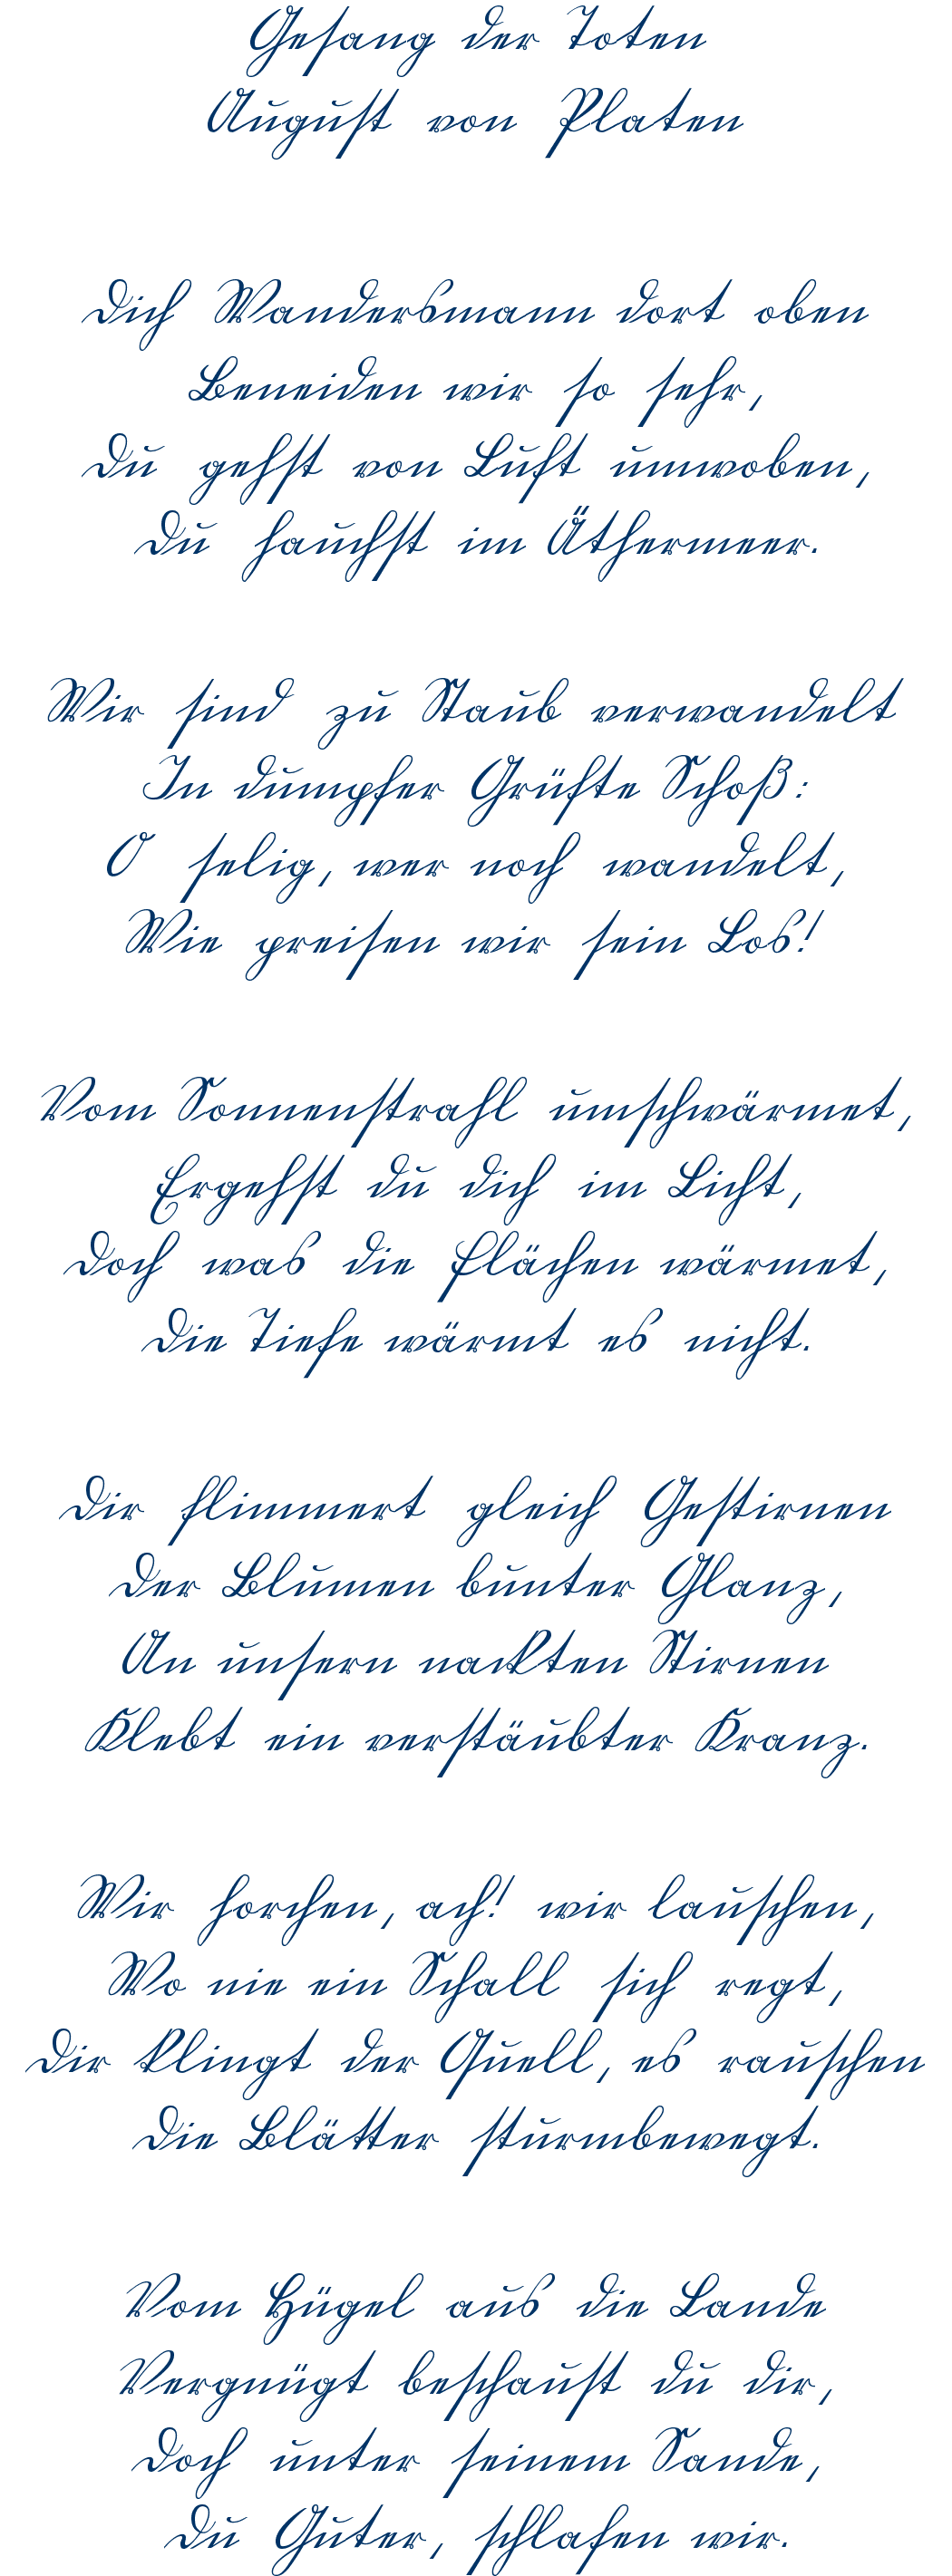 Gesang der Toten
August von Platen
Dich Wandersmann dort oben
Beneiden wir so sehr,
Du gehst von Luft umwoben,
Du hauchst im Äthermeer.
Wir sind zu Staub verwandelt
In dumpfer Grüfte Schoß:
O selig, wer noch wandelt,
Wie preisen wir sein Los!
Vom Sonnenstrahl umschwärmet,
Ergehst du dich im Licht,
Doch was die Flächen wärmet,
Die Tiefe wärmt es nicht.
Dir flimmert gleich Gestirnen
Der Blumen bunter Glanz,
An unsern nackten Stirnen
Klebt ein verstäubter Kranz.
Wir horchen, ach! wir lauschen,
Wo nie ein Schall sich regt,
Dir klingt der Quell, es rauschen
Die Blätter sturmbewegt.
Vom Hügel aus die Lande
Vergnügt beschaust du dir,
Doch unter seinem Sande,
Du Guter, schlafen wir.